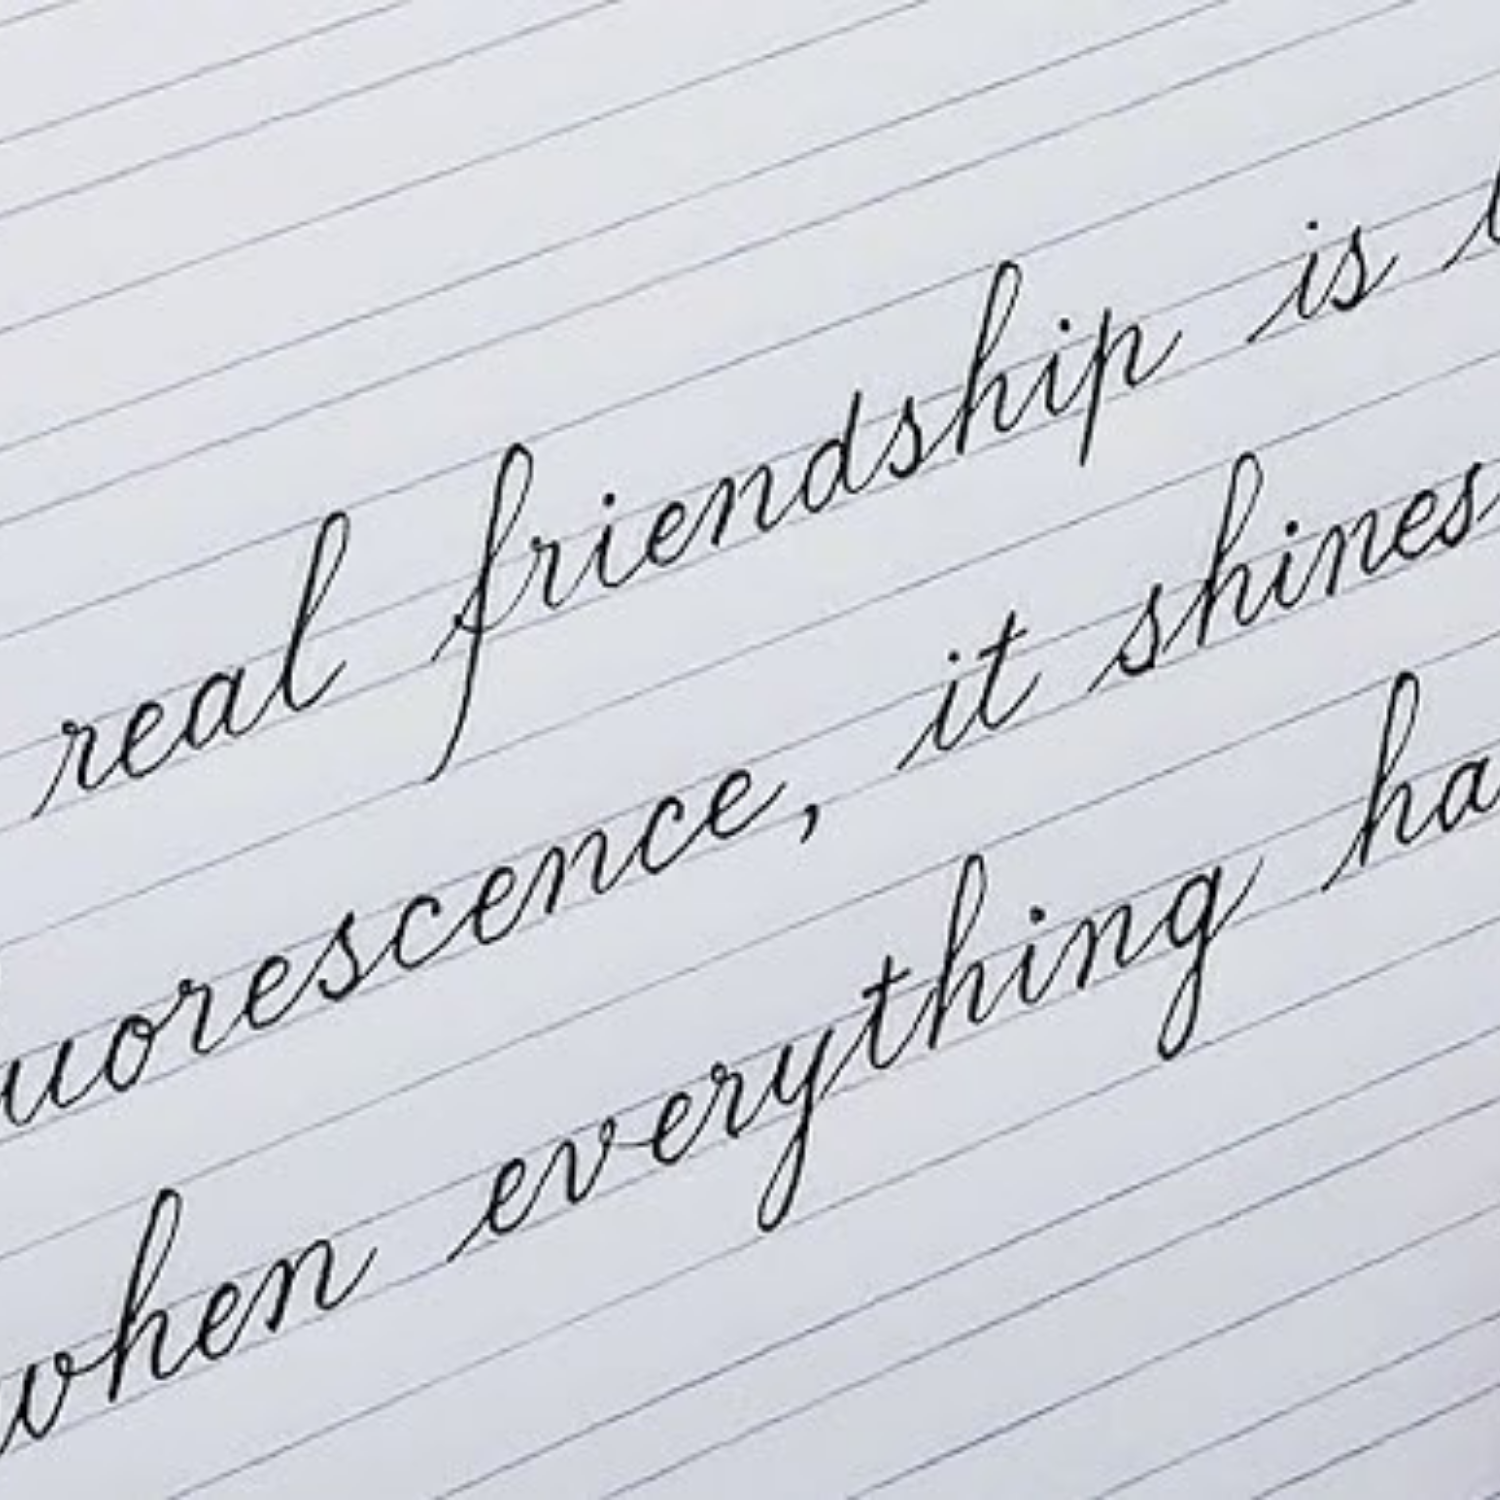 real friendship is
uorescence, it shines
when everything ha